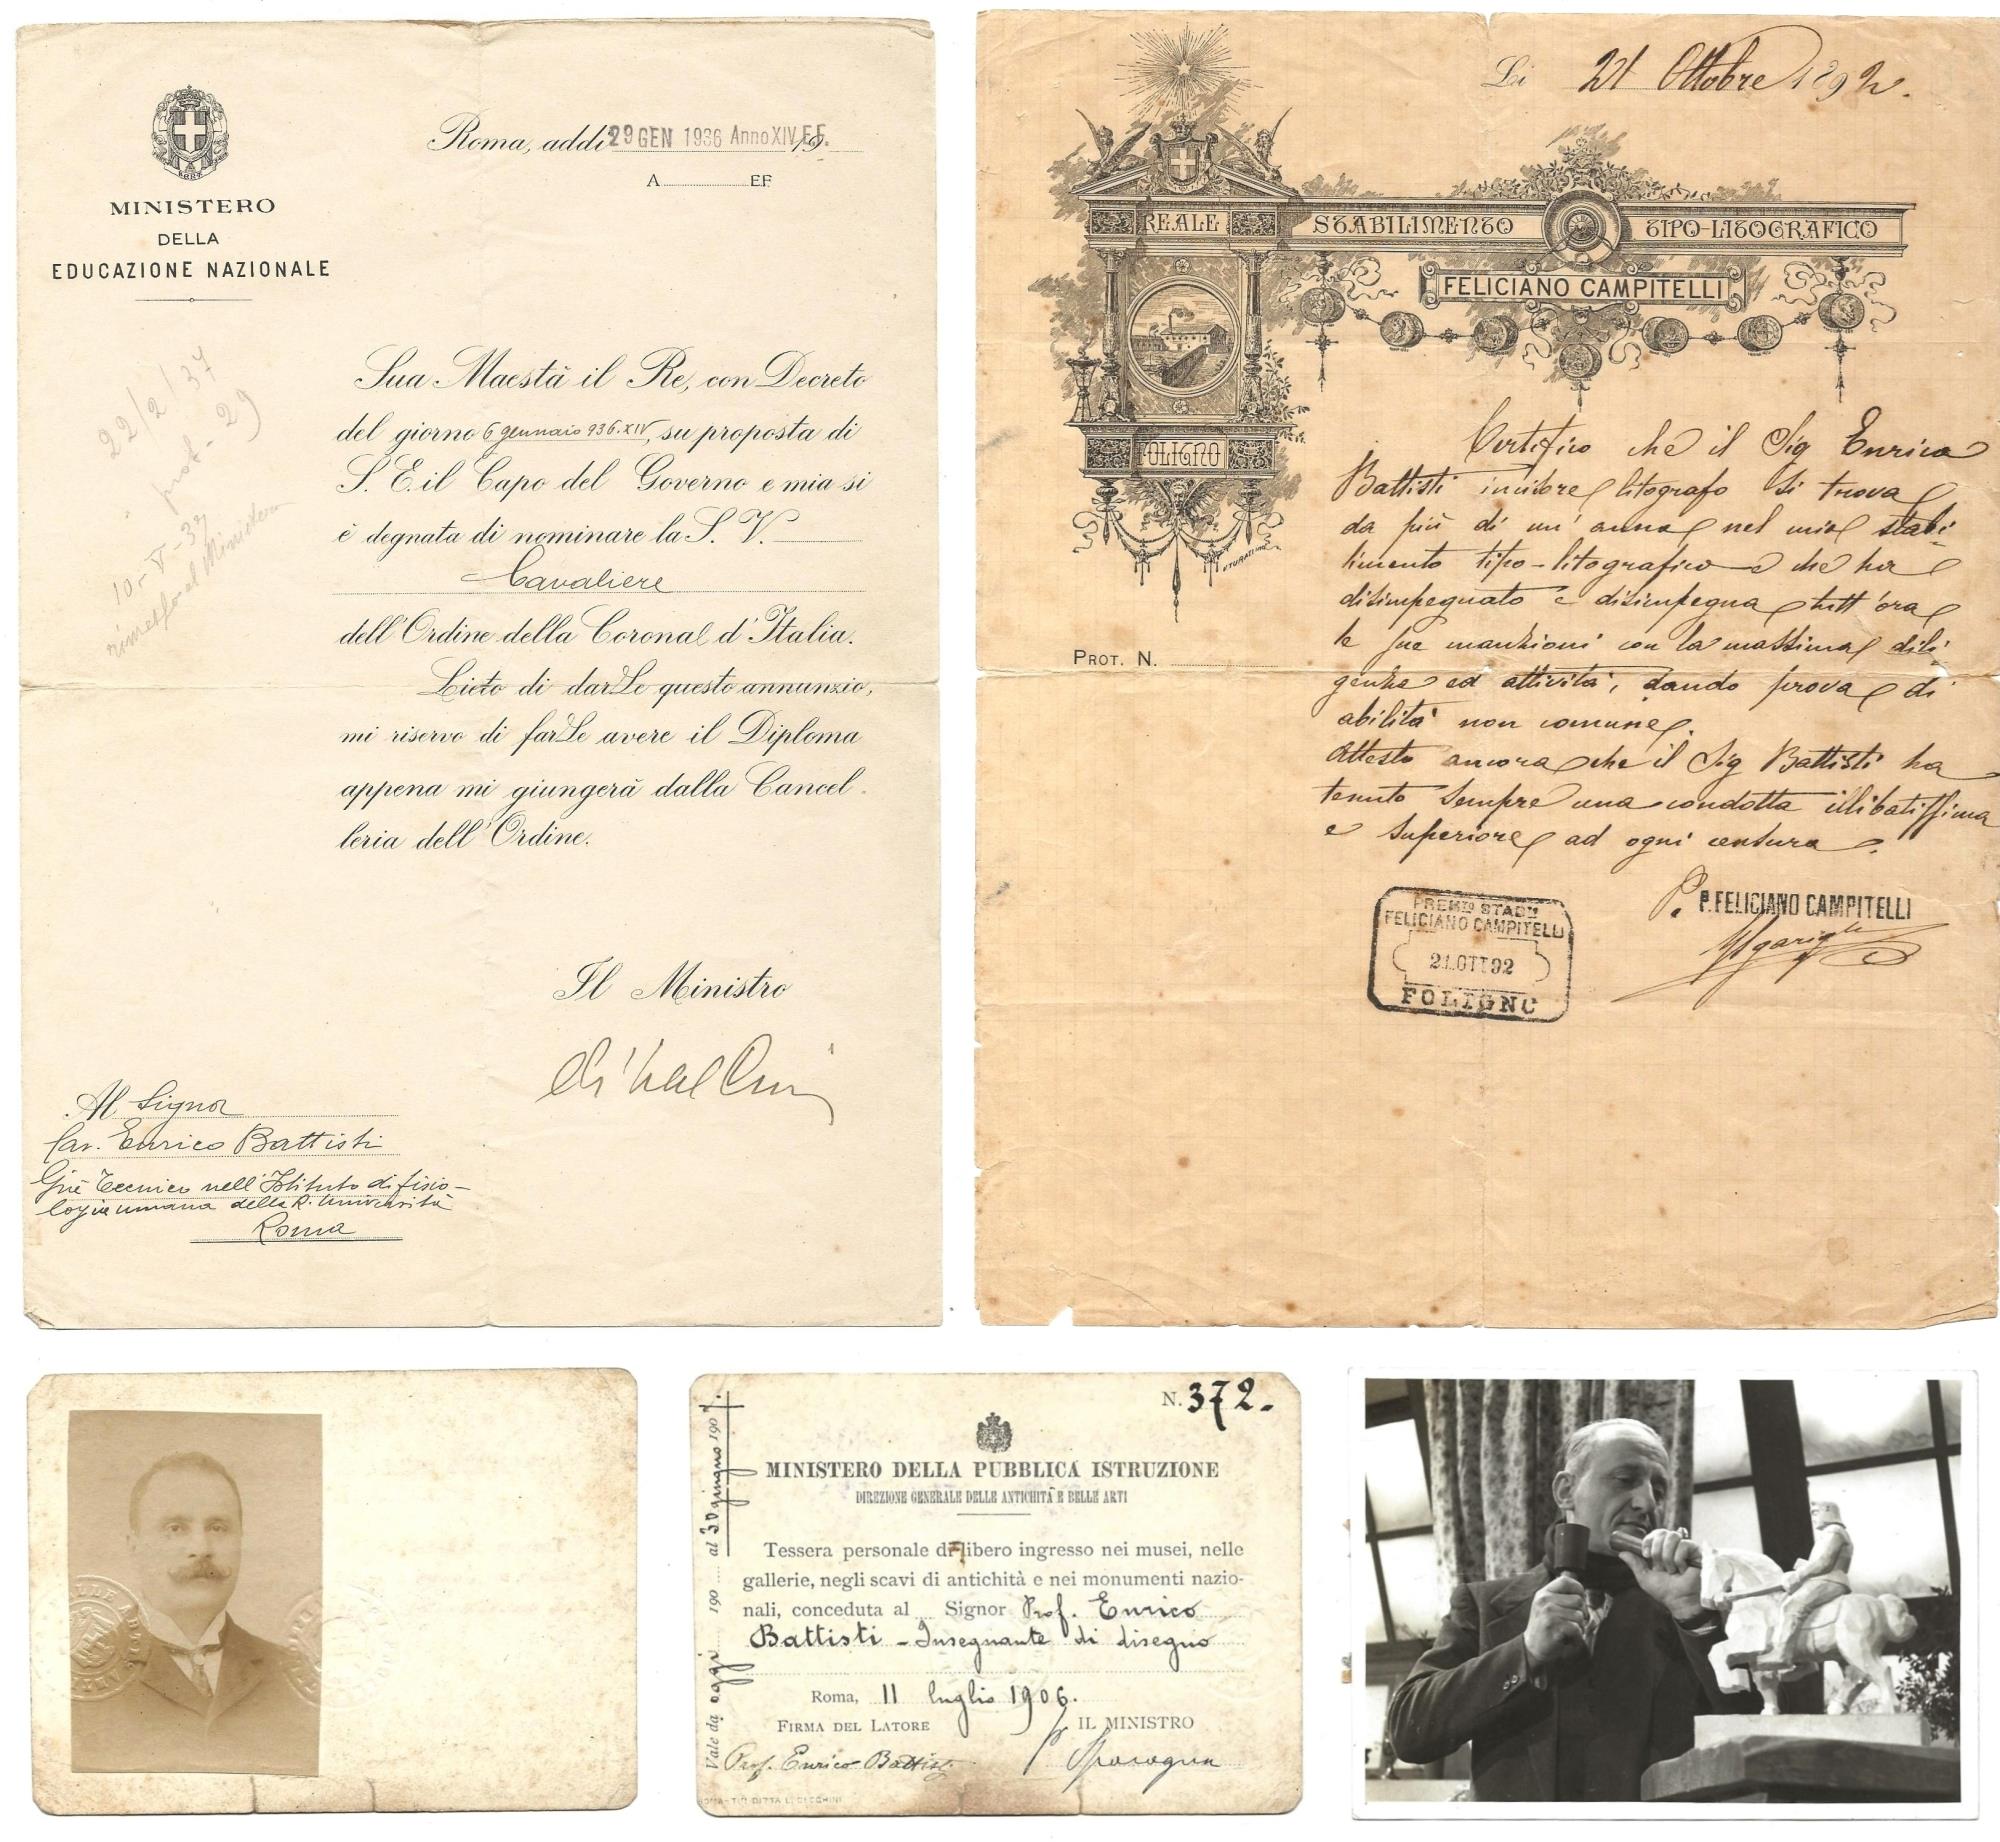 MINISTERO
DELLA
EDUCAZIONE NAZIONALE
Roma, addì 29 GEN 1936 Anno XIV E.F. 19
A EF
22/2/37
prot - 29
10-V-37
al Ministero
Sua Maestà il Re, con Decreto
del giorno 6 gennaio 936.XIV, su proposta di
S. E. il Capo del Governo e mia si
è degnata di nominare la S. V.
Cavaliere
dell'Ordine della Corona d'Italia.
Lieto di darLe questo annunzio,
mi riservo di farLe avere il Diploma
appena mi giungerà dalla Cancel-
leria dell'Ordine.
Il Ministro
Al Signor
Cav. Enrico Battisti
Già Tecnico nell'Istituto di fisio-
logia umana della R. Università
Roma
Li 21 Ottobre 1892.
REALE STABILIMENTO TIPO-LITOGRAFICO
FELICIANO CAMPITELLI
FOLIGNO
PROT. N.
Certifico che il Sig Enrico
Battisti incisore litografo si trova
da più di un'anno nel mio stabi-
limento tipo-litografico e che ha
disimpegnato e disimpegna tutt'ora
le sue manzioni con la massima dili-
genza ed attività, dando prova di
abilità non comune.
Attesto ancora che il Sig Battisti ha
tenuto sempre una condotta illibatissima
e superiore ad ogni censura.
P. P. FELICIANO CAMPITELLI
PREM.TO STAB.TO
FELICIANO CAMPITELLI
21 OTT 92
FOLIGNO
N. 372.
MINISTERO DELLA PUBBLICA ISTRUZIONE
DIREZIONE GENERALE DELLE ANTICHITÀ E BELLE ARTI
Tessera personale di libero ingresso nei musei, nelle
gallerie, negli scavi di antichità e nei monumenti nazio-
nali, conceduta al Signor Prof. Enrico
Battisti - Insegnante di disegno
Roma, 11 luglio 1906.
FIRMA DEL LATORE IL MINISTRO
Prof. Enrico Battisti
Vale da oggi 190 al 30 giugno 1907.
ROMA - TIP. DITTA L. CECCHINI